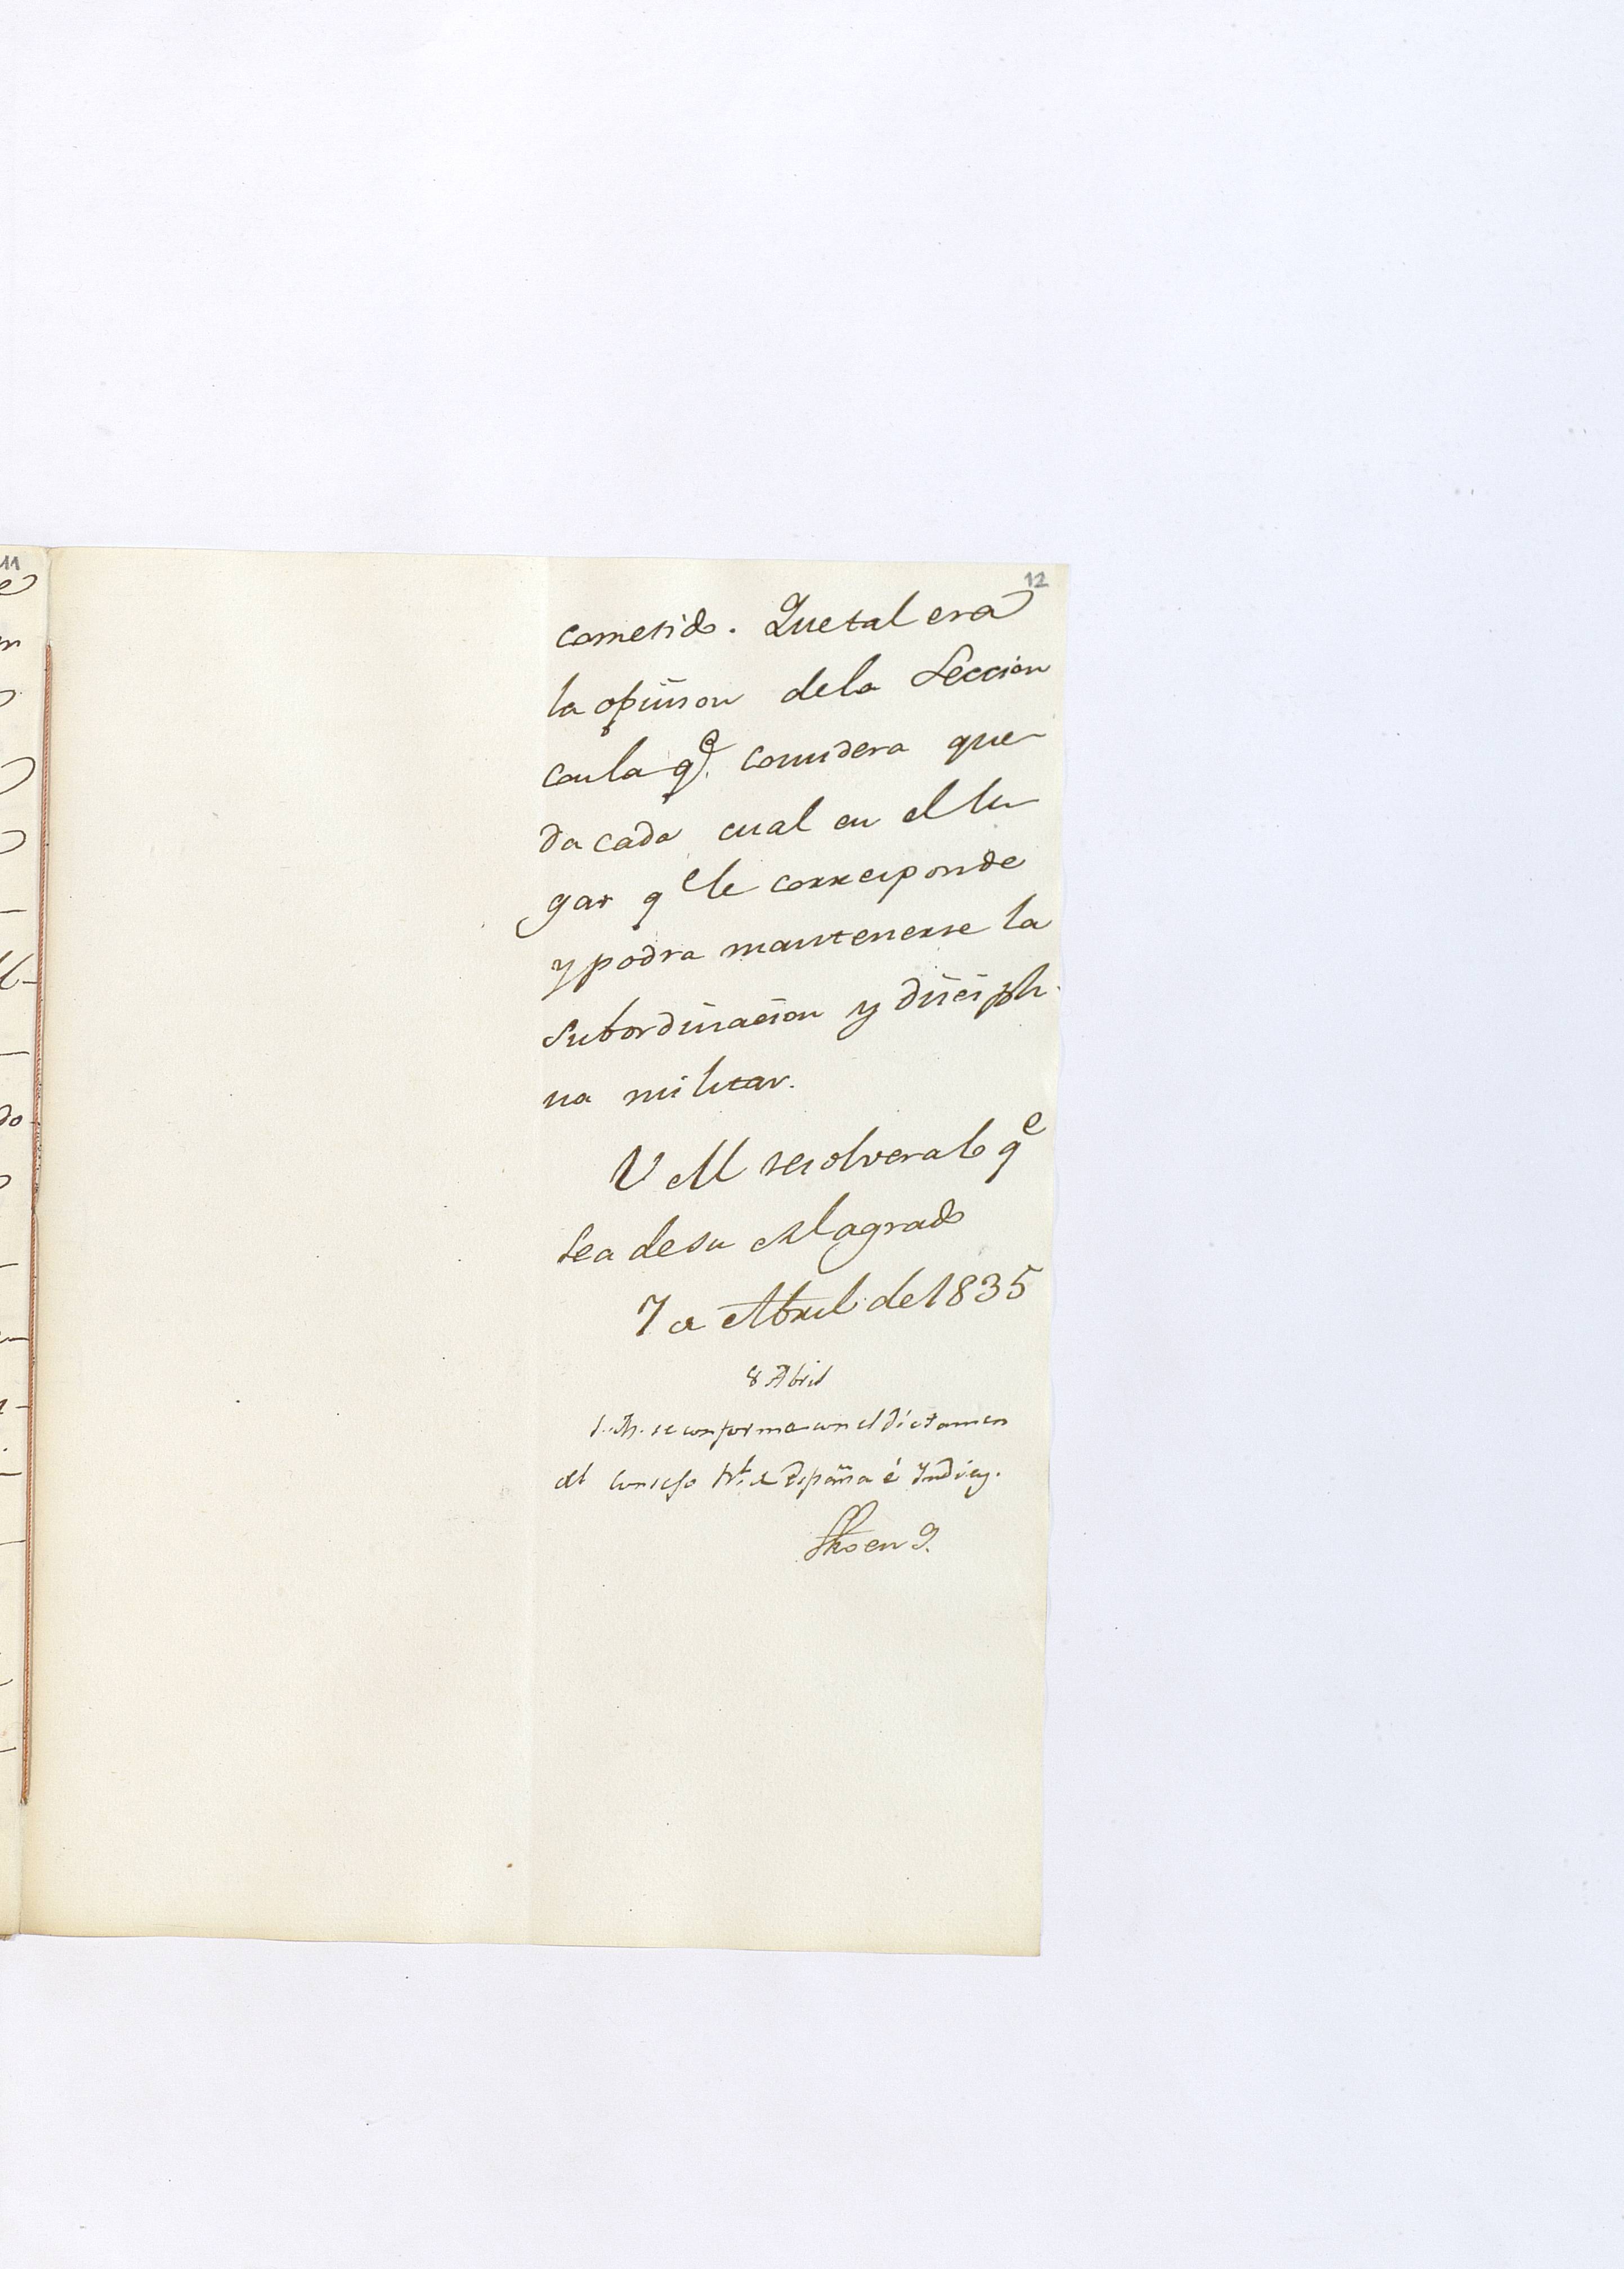 12
cometido. Que tal era
la opinion de la Seccion
con la qe. considera que-
da cada cual en el lu-
gar qe le corresponde
y podra mantenerse la
subordinacion y discipli-
na militar.
V M resolvera lo qe
sea de su Rl agrado
7 de Abril de 1835
8 Abril
S.M. se conforma con el dictamen
del Consejo Rl. de España é Yndias.
fho en 9.
11